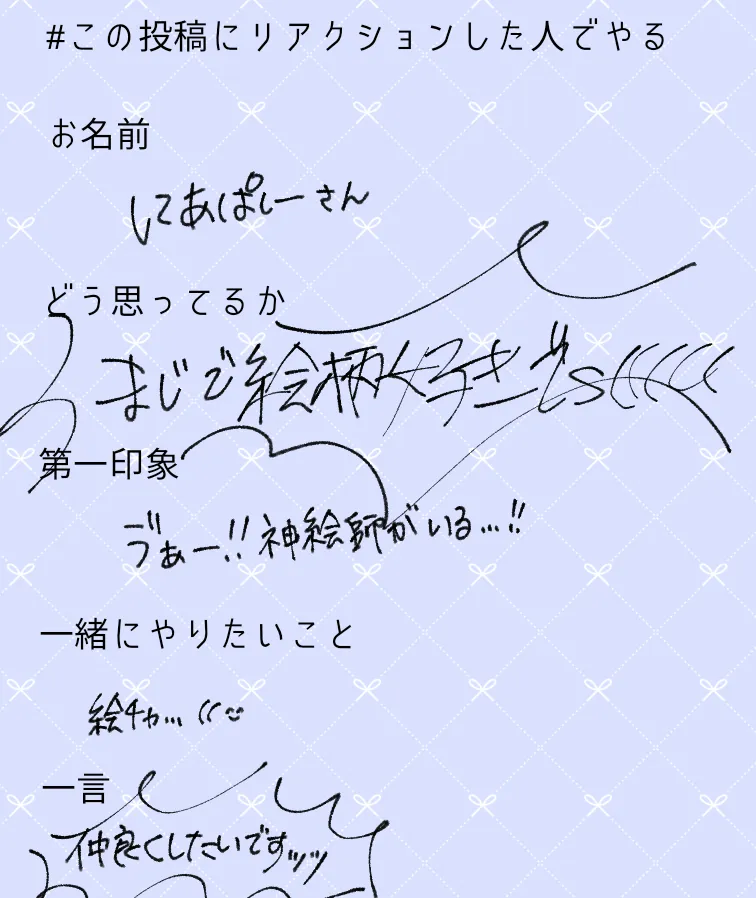 #この投稿にリアクションした人でやる
お名前
してあぱしーさん
どう思ってるか
まじで絵柄好きでs(((((
第一印象
ゔぁー!!神絵師がいる...!!
一緒にやりたいこと
絵チャ...((
一言
仲良くしたいですッッ